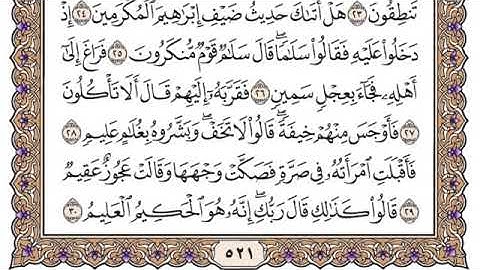 تَنطِقُونَ ۝٢٣ هَلْ أَتَىٰكَ حَدِيثُ ضَيْفِ إِبْرَٰهِيمَ ٱلْمُكْرَمِينَ ۝٢٤ إِذْ
دَخَلُوا۟ عَلَيْهِ فَقَالُوا۟ سَلَٰمًا ۖ قَالَ سَلَٰمٌ قَوْمٌ مُّنكَرُونَ ۝٢٥ فَرَاغَ إِلَىٰٓ
أَهْلِهِۦ فَجَآءَ بِعِجْلٍ سَمِينٍ ۝٢٦ فَقَرَّبَهُۥٓ إِلَيْهِمْ قَالَ أَلَا تَأْكُلُونَ
۝٢٧ فَأَوْجَسَ مِنْهُمْ خِيفَةً ۖ قَالُوا۟ لَا تَخَفْ ۖ وَبَشَّرُوهُ بِغُلَٰمٍ عَلِيمٍ ۝٢٨
فَأَقْبَلَتِ ٱمْرَأَتُهُۥ فِى صَرَّةٍ فَصَكَّتْ وَجْهَهَا وَقَالَتْ عَجُوزٌ عَقِيمٌ
۝٢٩ قَالُوا۟ كَذَٰلِكِ قَالَ رَبُّكِ ۖ إِنَّهُۥ هُوَ ٱلْحَكِيمُ ٱلْعَلِيمُ ۝٣٠
٥٢١